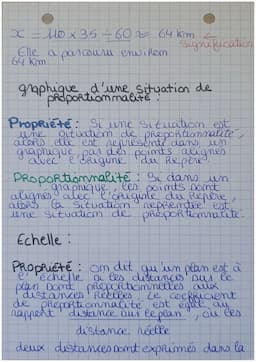 x = 110 × 35 ÷ 60 ≈ 64 km ← signification
Elle a parcouru environ
64 km
graphique d'une situation de
proportionnalité :
Propriété : Si une situation est
une situation de proportionnalité,
alors elle est représentée dans un
graphique par des points alignés
avec l'origine du repère
Proportionnalité : Si dans un
graphique, les points sont
alignés avec l'origine du repère,
alors la situation représentée est
une situation de proportionnalité.
Echelle :
Propriété : on dit qu'un plan est à
l'échelle si les distances sur le
plan sont proportionnelles aux
distances réelles. Le coefficient
de proportionnalité est égal au
rapport distance sur le plan, où les
distance réelle
deux distances sont exprimés dans la